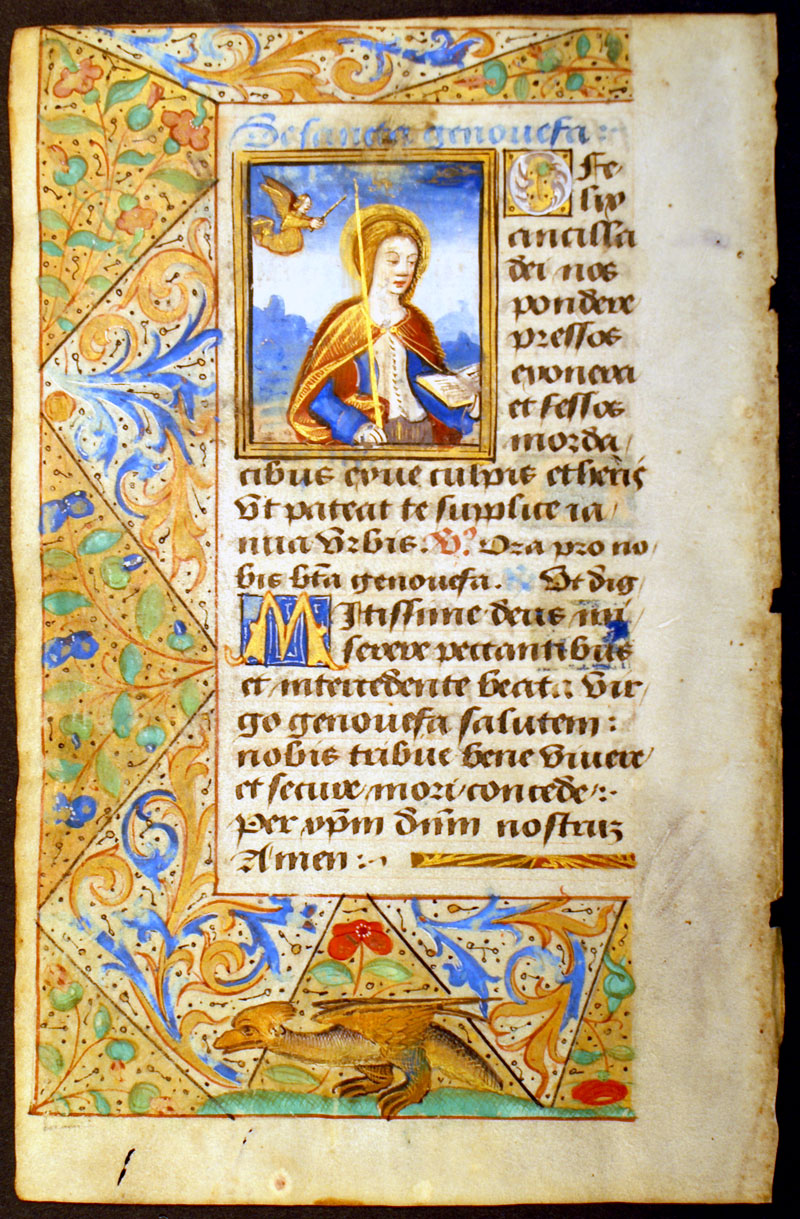 De sancta genouefa:
O Fe
lix
ancilla
dei nos
pondere
pressos
et fessos
morda/
cibus culpis
Vt pateat te supplice ia/
nua vrbis. V? Ora pro no/
bis bta genouefa. Vt dig/
Mitissime deus mi/
serere peccantibus
et intercedente beata vir
go genouefa salutem:
nobis tribue bene viuere
et secure mori concede:
per xpm dnm nostrum
Amen: